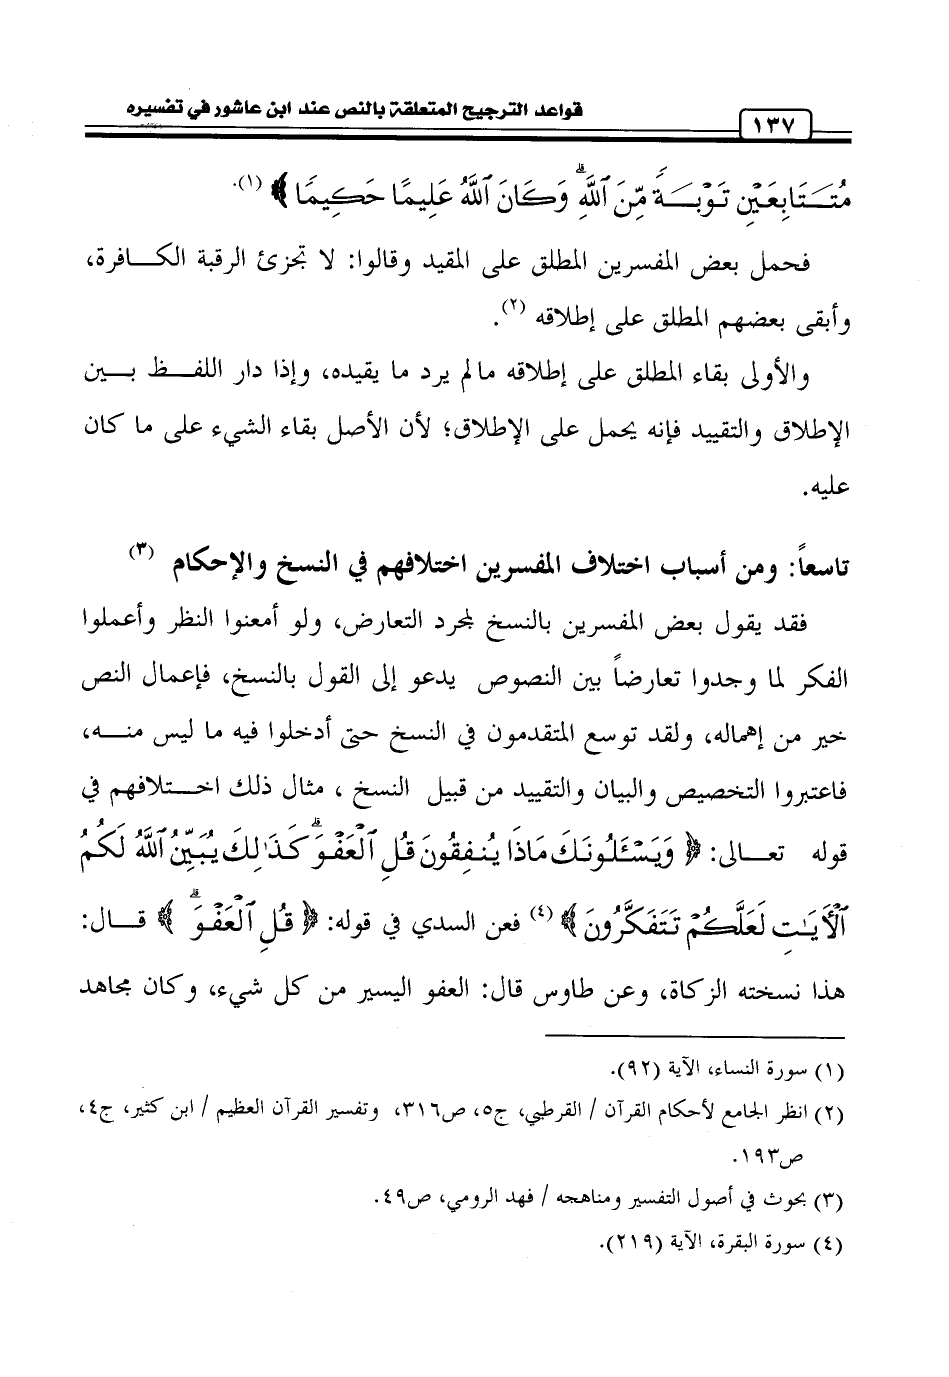 قواعد الترجيح المتعلقة بالنص عند ابن عاشور في تفسيره
١٣٧
مُتَتَابِعَيْنِ تَوْبَةً مِّنَ ٱللَّهِۗ وَكَانَ ٱللَّهُ عَلِيمًا حَكِيمًا ﴾ (١).
فحمل بعض المفسرين المطلق على المقيد وقالوا: لا تجزئ الرقبة الكافرة،
وأبقى بعضهم المطلق على إطلاقه (٢).
والأولى بقاء المطلق على إطلاقه مالم يرد ما يقيده، وإذا دار اللفظ بين
الإطلاق والتقييد فإنه يحمل على الإطلاق؛ لأن الأصل بقاء الشيء على ما كان
عليه.
تاسعاً: ومن أسباب اختلاف المفسرين اختلافهم في النسخ والإحكام (٣)
فقد يقول بعض المفسرين بالنسخ لمجرد التعارض، ولو أمعنوا النظر وأعملوا
الفكر لما وجدوا تعارضاً بين النصوص يدعو إلى القول بالنسخ، فإعمال النص
خير من إهماله، ولقد توسع المتقدمون في النسخ حتى أدخلوا فيه ما ليس منه،
فاعتبروا التخصيص والبيان والتقييد من قبيل النسخ ، مثال ذلك اختلافهم في
قوله تعالى: ﴿ وَيَسْـَٔلُونَكَ مَاذَا يُنفِقُونَ قُلِ ٱلْعَفْوَۗ كَذَٰلِكَ يُبَيِّنُ ٱللَّهُ لَكُمُ
ٱلْأَيَـٰتِ لَعَلَّكُمْ تَتَفَكَّرُونَ ﴾ (٤) فعن السدي في قوله: ﴿ قُلِ ٱلْعَفْوَۗ ﴾ قال:
هذا نسخته الزكاة، وعن طاوس قال: العفو اليسير من كل شيء، وكان مجاهد
(١) سورة النساء، الآية (٩٢).
(٢) انظر الجامع لأحكام القرآن / القرطبي، ج٥، ص٣١٦، وتفسير القرآن العظيم / ابن كثير، ج٤،
ص١٩٣.
(٣) بحوث في أصول التفسير ومناهجه / فهد الرومي، ص٤٩.
(٤) سورة البقرة، الآية (٢١٩).